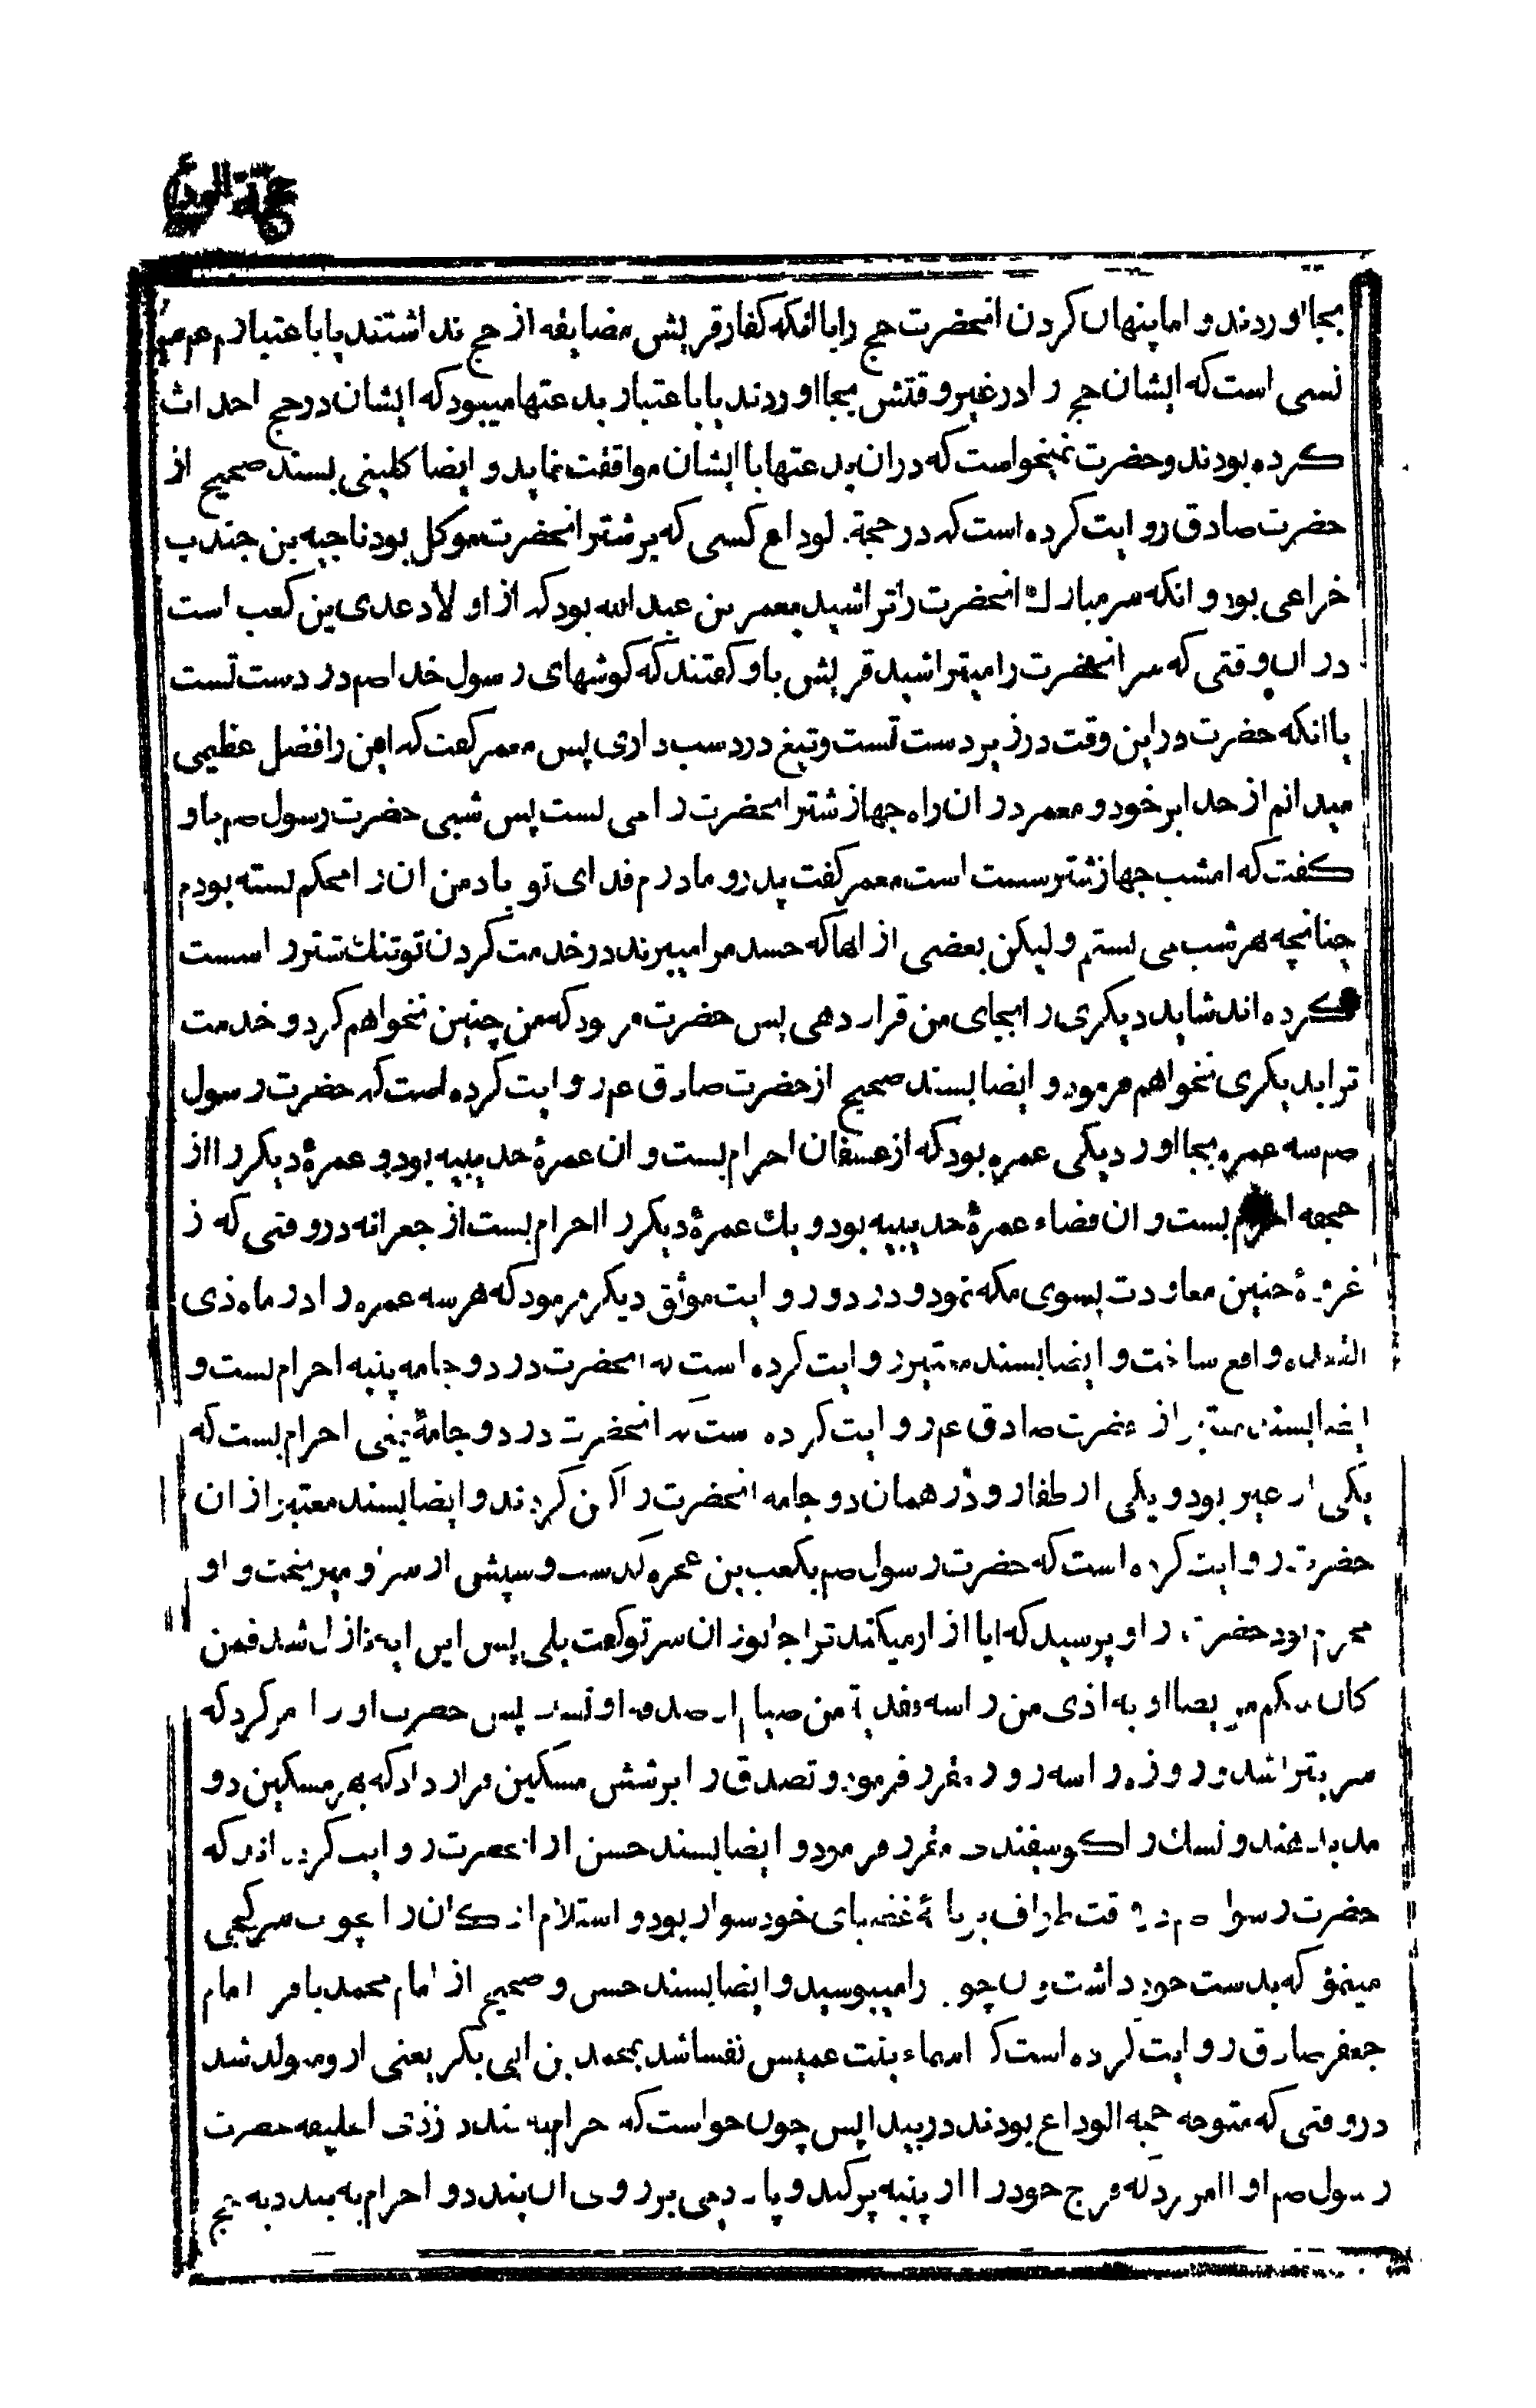 حجّة الوداع
بجا اوردند و اما پنهان کردن انحضرت حج را با انکه کفار قریش مضایقه از حج نداشتند یا باعتبار
نسی است که ایشان حج را در غیر وقتش بجا اوردند یا باعتبار بدعتها میبود که ایشان در حج احداث
کرده بودند و حضرت نمیخواست که در ان بدعتها با ایشان موافقت نماید و ایضا کلینی بسند صحیح از
حضرت صادق روایت کرده است که در حجة لوداع کسی که بر شتر انحضرت موکل بود ناجیه بن جندب
خزاعی بود و انکه سر مبارك انحضرت را تراشید معمر بن عبد الله بود که از اولاد عدی بن کعب است
در ان وقتی که سر انحضرت را میتراشید قریش باو گفتند که گوشهای رسول خدا صم در دست تست
یا انکه حضرت در این وقت در زیر دست تست و تیغ در دست داری پس معمر گفت که این را فضل عظیمی
میدانم از خدا بر خود و معمر در ان راه جهاز شتر انحضرت را می بست پس شبی حضرت رسول صم باو
کفت که امشب جهاز شتر سست است معمر گفت پدر و مادرم فدای تو باد من ان را محکم بسته بودم
چنانچه هر شب می بستم و لیکن بعضی از انها که حسد مرا میبرند در خدمت کردن تو تنك شتر را سست
کرده اند شاید دیکری را بجای من قرار دهی پس حضرت فرمود که من چنین نخواهم کرد و خدمت
ترا بدیکری نخواهم فرمود و ایضا بسند صحیح از حضرت صادق عم روایت کرده است که حضرت رسول
صم سه عمره بجا اورد یکی عمره بود که از عسفان احرام بست و ان عمرهٔ حدیبیه بود و عمرهٔ دیکر را از
جحفه احرام بست و ان قضاء عمرهٔ حدیبیه بود و یك عمرهٔ دیکر را احرام بست از جعرانه در وقتی که ز
غزوهٔ حنین معاودت بسوی مکه نمود و در دو روایت موثق دیکر فرمود که هر سه عمره را در ماه ذی
القعده واقع ساخت و ایضا بسند معتبر روایت کرده است که انحضرت در دو جامه پنبه احرام بست و
ایضا بسند معتبر از حضرت صادق عم روایت کرده ست که انحضرت در دو جامهٔ یمنی احرام بست که
یکی از عبر بود و یکی از ظفار و در همان دو جامه انحضرت را کفن کردند و ایضا بسند معتبر از ان
حضرت روایت کرده است که حضرت رسول صم بکعب بن عجره گذشت و سپش از سر او میریخت و او
محرم بود حضرت از او پرسید که ایا ازار میکند ترا جانوران سر تو گفت بلی پس این ایه نازل شد فمن
کان منکم مریضا او به اذی من راسه ففدیة من صیام او صدقه او نسك پس حضرت او را امر کرد که
سر بتراشد و روزه را سه روز مقرر فرمود و تصدق را بر شش مسکین قرار داد که بهر مسکین دو
مد بدهند و نسك را کوسفندی مقرر فرمود و ایضا بسند حسن از انحضرت روایت کرده اند که
حضرت رسول صم در وقت طواف بر ناقهٔ غضبای خود سوار بود و استلام ارکان را بچوب سرکجی
مینمود که بدست خود داشت و ان چوب را میبوسید و ایضا بسند حسن و صحیح از امام محمد باقر امام
جعفر صادق روایت کرده است که اسماء بنت عمیس نفسا شد بمحمد بن ابی بکر یعنی از و متولد شد
در وقتی که متوجه حجه الوداع بودند در بیدا پس چون خواست که حرام به بندد از ذی الحلیفه حضرت
رسول صم او را امر کرد که فرج خود را از پنبه پر کند و پارچهٔ بر روی ان بندد و احرام به بندد به حج